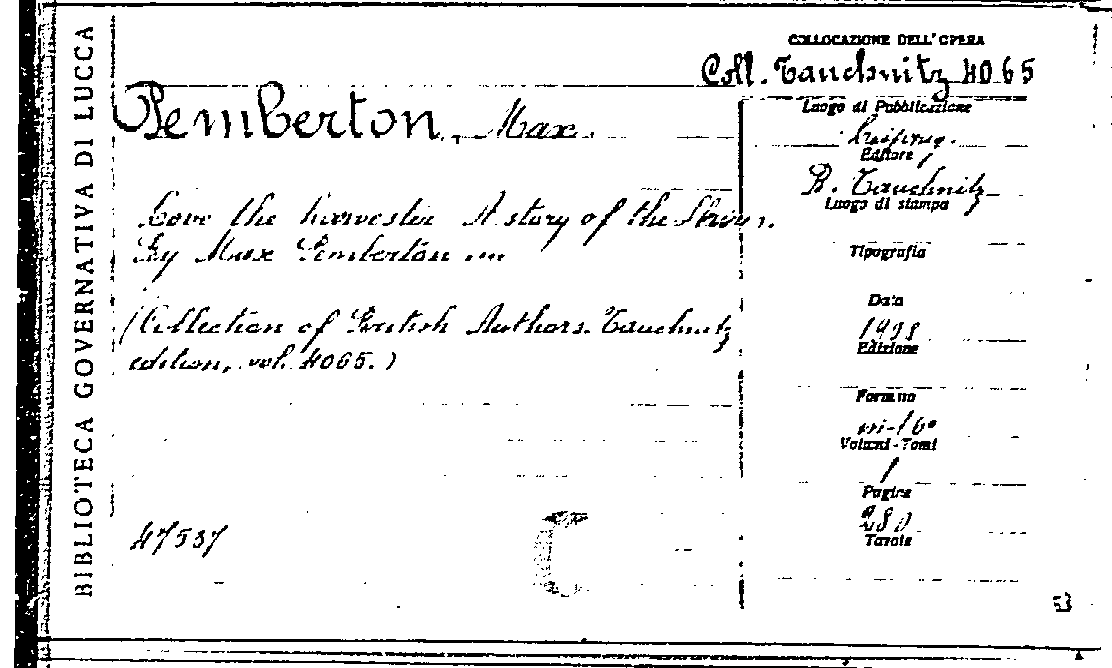 BIBLIOTECA GOVERNATIVA DI LUCCA
COLLOCAZIONE DELL'OPERA
Coll. Tauchnitz 4065
Pemberton, Max.
Love the harvester A story of the Shires.
By Max Pemberton ...
(Collection of British Authors. Tauchnitz
edition, vol. 4065.)
47537
Luogo di Pubblicazione
Leipzig.
Editore
B. Tauchnitz
Luogo di stampa
Tipografia
Data
Edizione
Formato
in-16°
Volumi-Tomi
1
Pagine
280
Tavole